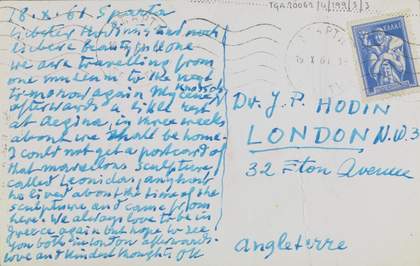 TGA 20062/4/199/3/3
18.X.61 Sparta
we are travelling from
one museum to the next
tomorrow again Mycenae
Knossos
afterwards a little rest
at Aegina, in three weeks
about we shall be home.
I could not get a postcard of
that marvellous sculpture
called Leonidas, anyhow
he lived about the time of the
sculpture and came from
here. We always love to be in
Greece again but hope to see
you both in London afterwards.
love and kindest thoughts OK
Dr. J. P. HODIN
LONDON N.W.3
32 Eton Avenue
Angleterre